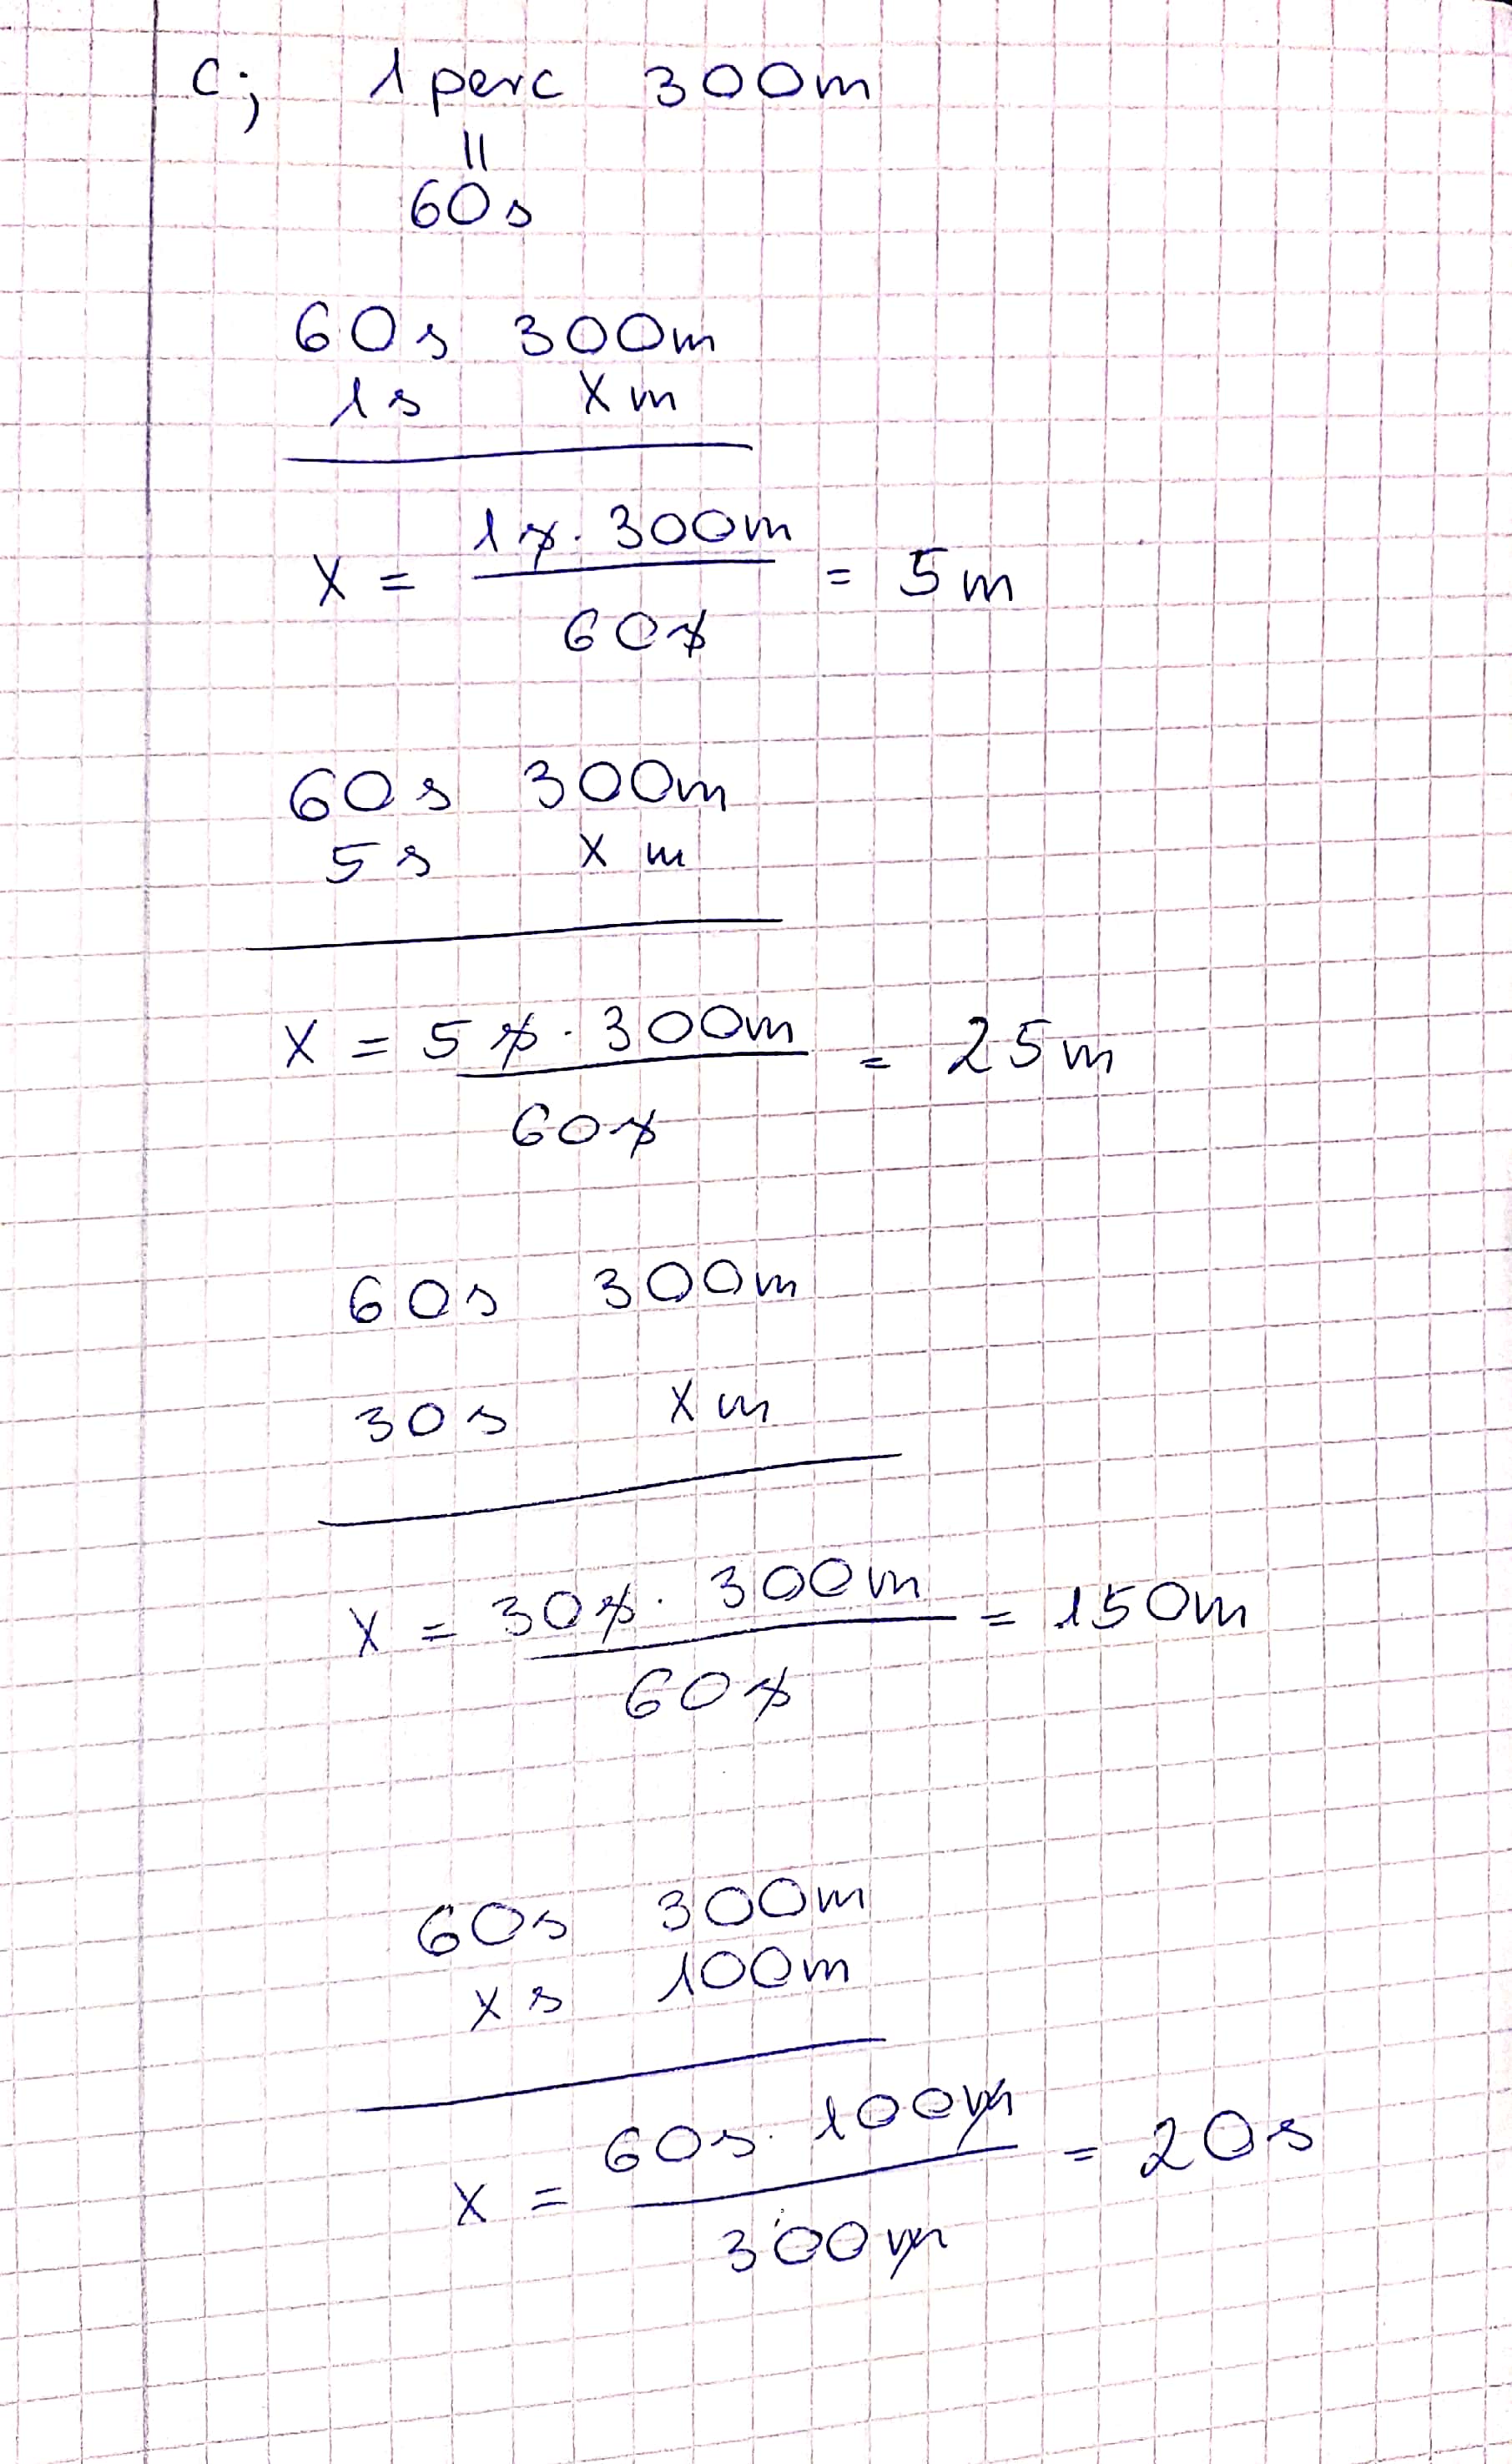 c; 1 perc 300m
||
60s
60s 300m
1s x m
x = 1s · 300m / 60s = 5m
60s 300m
5s x m
x = 5s · 300m / 60s = 25m
60s 300m
30s x m
x = 30s · 300m / 60s = 150m
60s 300m
x s 100m
x = 60s · 100m / 300m = 20s